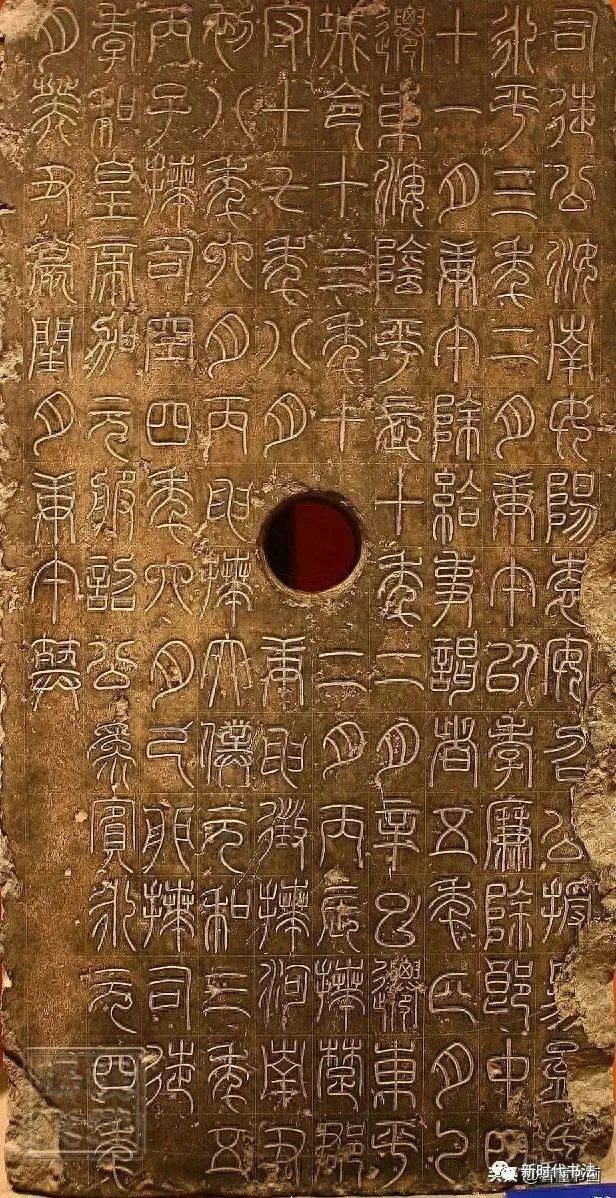 司徒公汝南女陽袁安召公授易孟氏
永平三年二月庚午以孝廉除郎中四
十一月庚午除給事謁者五年四月乙
遷東海陰平長十年二月辛巳遷東平
城令十三年十二月丙辰拜楚郡
守十七年八月庚申徵拜河南尹
初八年六月丙申拜太僕元和三年五
丙子拜司空四年六月己卯拜司徒
孝和皇帝加元服詔公為賓永元四年
月癸丑薨閏月庚午葬
新时代书法